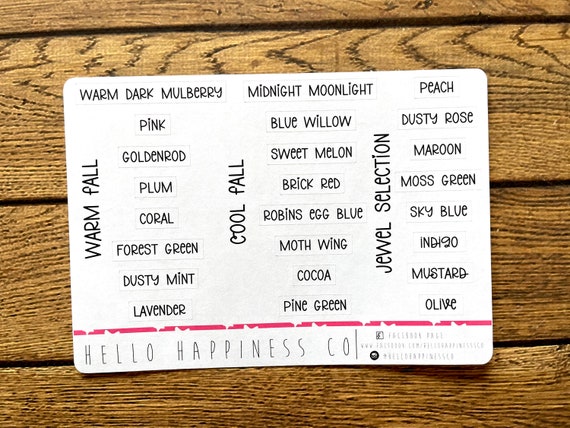 WARM FALL
WARM DARK MULBERRY
PINK
GOLDENROD
PLUM
CORAL
FOREST GREEN
DUSTY MINT
LAVENDER
COOL FALL
MIDNIGHT MOONLIGHT
BLUE WILLOW
SWEET MELON
BRICK RED
ROBINS EGG BLUE
MOTH WING
COCOA
PINE GREEN
JEWEL SELECTION
PEACH
DUSTY ROSE
MAROON
MOSS GREEN
SKY BLUE
INDIGO
MUSTARD
OLIVE
HELLO HAPPINESS CO
FACEBOOK PAGE
WWW.FACEBOOK.COM/HELLOHAPPINESSCO
@HELLOHAPPINESSCO